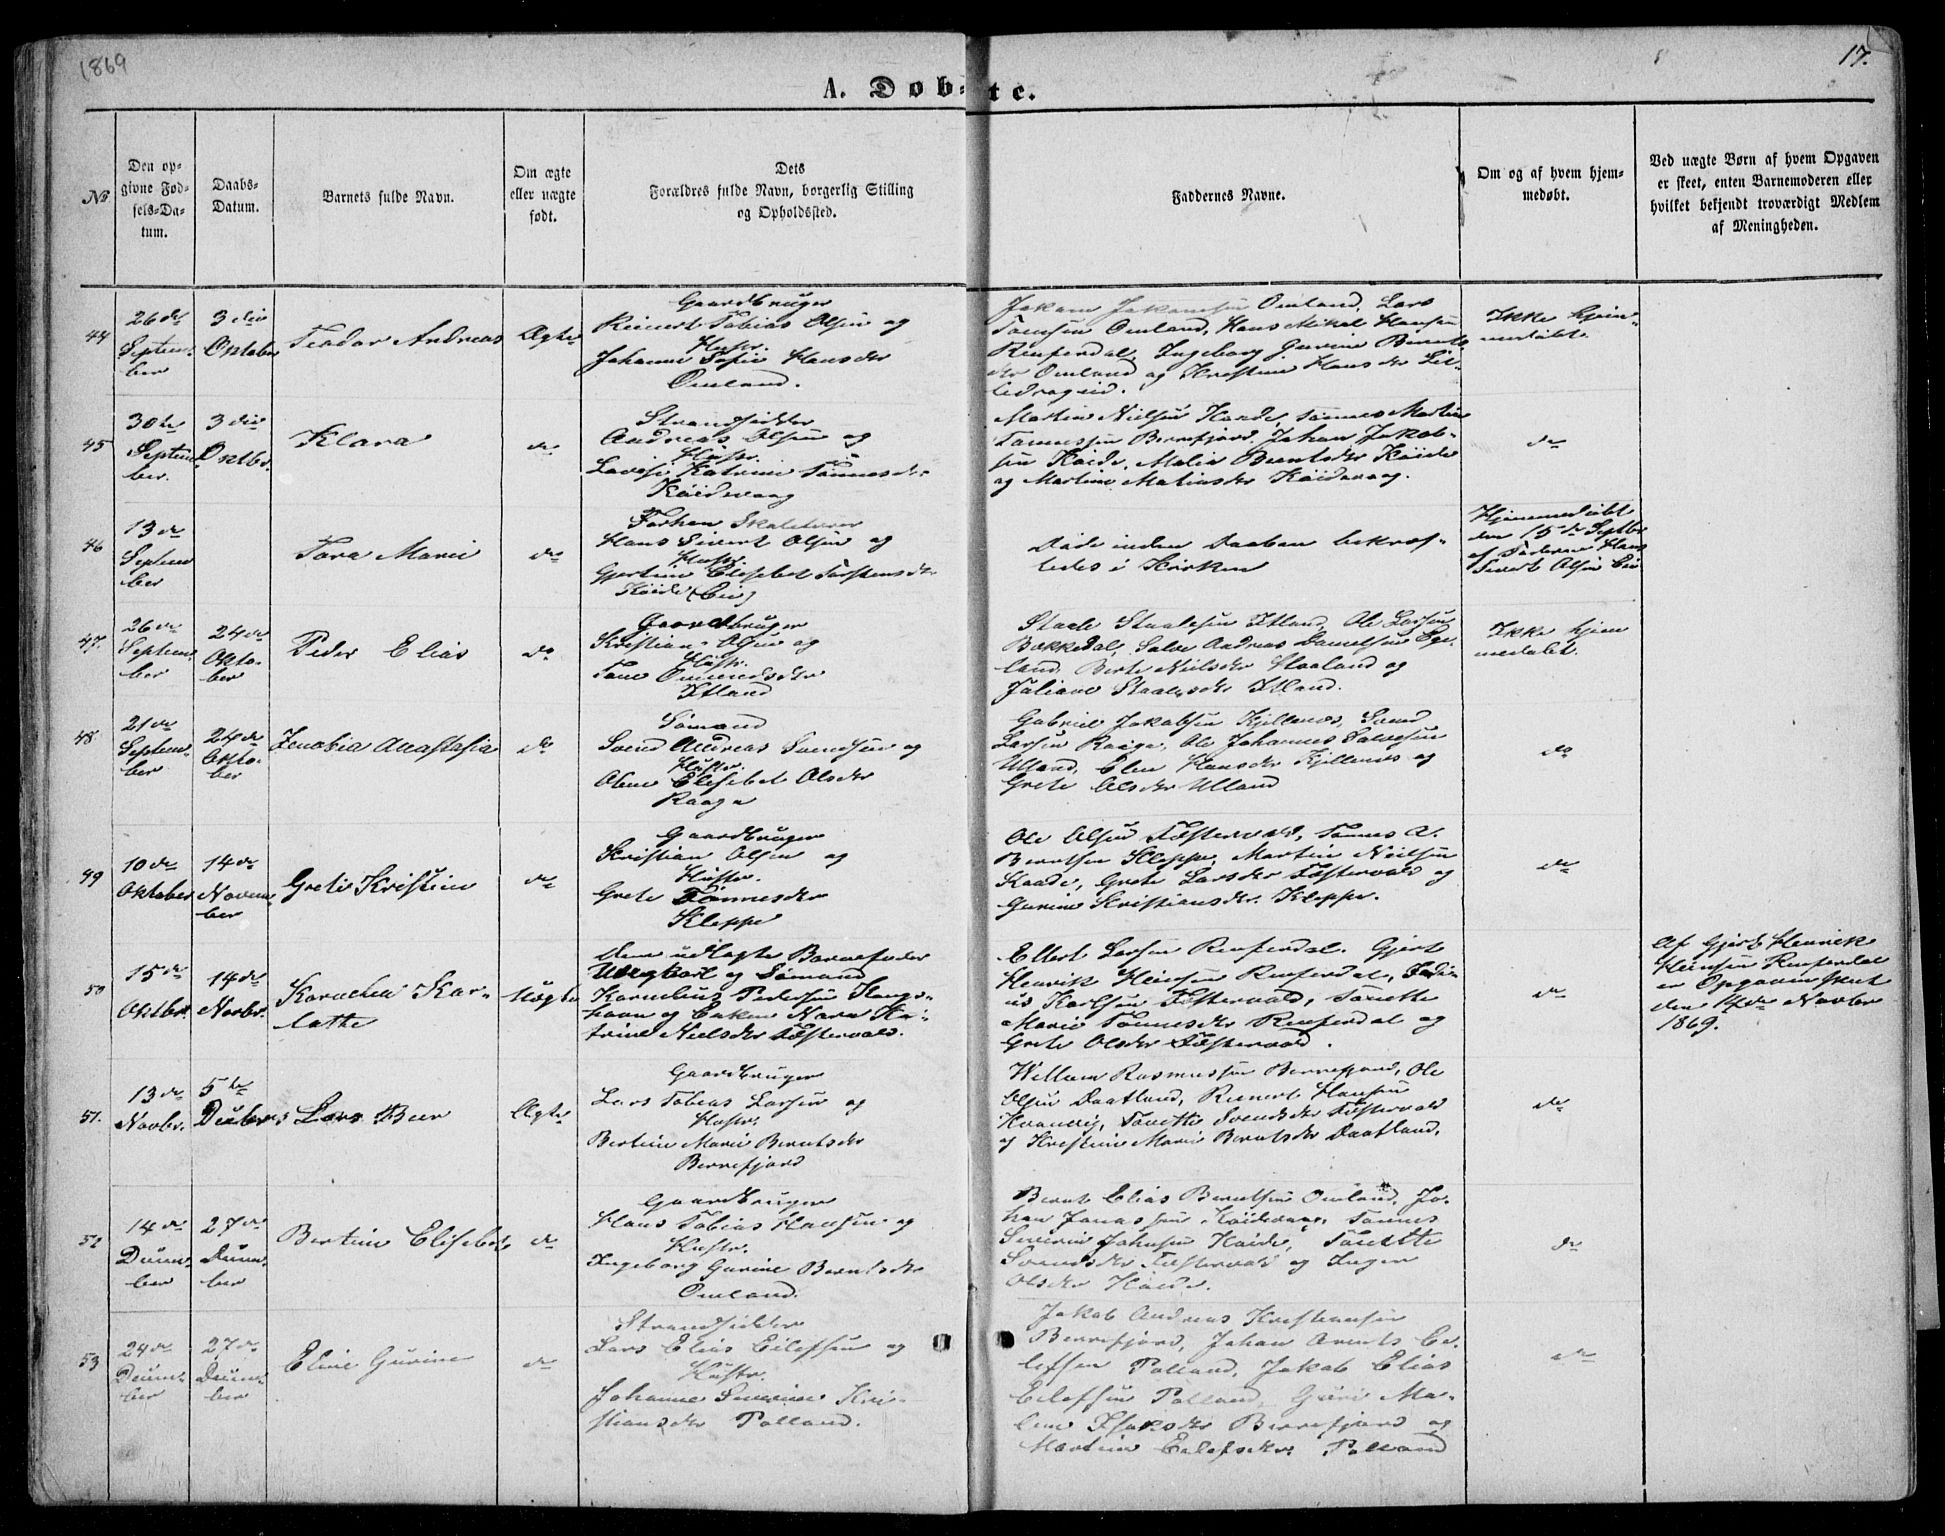 1869
17.
A. Døbte.
No
Den opgivne Fødsels-Datum.
Daabs-Datum.
Barnets fulde Navn.
Om ægte eller uægte født.
Dets Forældres fulde Navn, borgerlig Stilling og Opholdssted.
Faddernes Navne.
Om og af hvem hjemmedøbt.
Ved uægte Børn af hvem Opgaven er skeet, enten Barnemoderen eller hvilket bekjendt troværdigt Medlem af Meningheden.
44
26de
September
3die
Oktober
Teodor Andreas
Ægte
Gaardbruger
Reinert Tobias Olsen og
Hustr.
Johanne Sofie Hansdtr
Omland.
Jakam Jakamsen Omland, Lars
Tomsen Omland, Hans Mikal Hansen
Renferdal, Ingeborg Gurine Bernts-
dtr Omland og Kristine Hansdtr Lil-
ledrageid.
Ikke hjem-
medøbt.
45
30te
September.
3die
Oktbr.
Klara
do
Strandsidder
Andreas Olsen og
Hustr.
Lovise Katrine Tønnesdtr
Køidevaag
Martin Nielsen Kaade, Tønnes Martin
Tønnessen Berrefjord, Johan Jakob-
sen Køide, Malin Berntsdtr Køide
og Martine Matiasdtr Køidevaag.
do
46
13de
September
Tora Marie
do
Forhen Skolelærer
Hans Sivert Olsen og
Hustr.
Gjertine Elisebet Torstensdtr
Køide (Eie)
Døde inden Daaben bekræf-
tedes i Kirken
Hjemmedøbt
den 15de Septbr
af Faderen Hans
Sivert Olsen Eie
47.
26de
September
24de
Oktober
Peder Elias
do
Gaardbruger
Kristian Olsen og
Hustr.
Tone Omundsdtr
Itland
Staale Staalesen Itland, Ole Larsen
Bækkedal, Salve Andreas Danielsen Ege-
land, Berte Nielsdtr Haaland og
Juliane Staalesdtr Itland.
Ikke hjem
medøbt.
48.
21de
September
24de
Oktober
Zenobia Anastasia
do
Sømand
Svend Andreas Svendsen og
Hustr.
Olene Elisebet Olsdtr
Raage
Gabriel Jakobsen Kjellenes, Svend
Larsen Raage, Ole Johannes Salvesen
Ulland, Elen Hansdtr Kjellenes og
Grete Olsdtr Ulland
do
49
10de
Oktober
14de
November
Grete Kristine
do
Gaardbruger
Kristian Olsen og
Hustr.
Grete Tønnesdtr
Kleppe
Ole Olsen Fostervold, Tønnes A.
Berntsen Kleppe, Martin Nielsen
Kaade, Grete Larsdtr Fostervold og
Gurine Kristiansdtr. Kleppe.
do
50
15de
Oktbr.
14de
Novbr.
Kornelia Kar-
lotte
Uægte
Den udlagte Barnefader
Ungkarl og Sømand
Kornelius Pedersen Langs-
havn og Enken Nora Ka-
trine Nielsdtr Fostervold.
Ellert Larsen Renferdal. Gjert
Henrik Heinsen Renferdal,
Karlsen Fostervold, Tonette
Marie Tønnesdtr Renferdal og
Grete Olsdtr Fostervold.
do
Af Gjert Henrik
Heinsen Renferdal
er Opgaven skeet
den 14de Novbr
1869.
51.
13de
Novbr.
5te
Decbr.
Lars Beer
Ægte
Gaardbruger
Lars Tobias Larsen og
Hustr.
Bertine Marie Berntsdtr
Berrefjord
Willum Rasmussen Berrefjord, Ole
Olsen Daatland, Reinert Hansen
Kvanvig, Tonette Svendsdtr Fostervold
og Kristine Marie Berntsdtr Daatland.
do
52
14de
December
27de
December
Bertine Elisebet
do
Gaardbruger
Hans Tobias Hansen og
Hustr.
Ingeborg Gurine Berntsdtr
Omland.
Bernt Elias Berntsen Omland, Jo-
han Jonassen Køidevaag, Tønnes
Severin Johnsen Køide, Tonette
Svendsdtr Fostervold og Inger
Olsdtr Køide.
do
53
24de
December
27de
December
Eline Gurine
do
Strandsidder
Lars Elias Eilefsen og
Hustr.
Johanne Severine Kri-
stiansdtr Polland.
Jakob Andreas Kristensen
Berrefjord, Johan Arents Ei-
lefsen Polland, Jakob Elias
Eilefsen Polland, Guri Ma-
lene Isaksdtr Berrefjord og
Martine Eilefsdtr. Polland
do